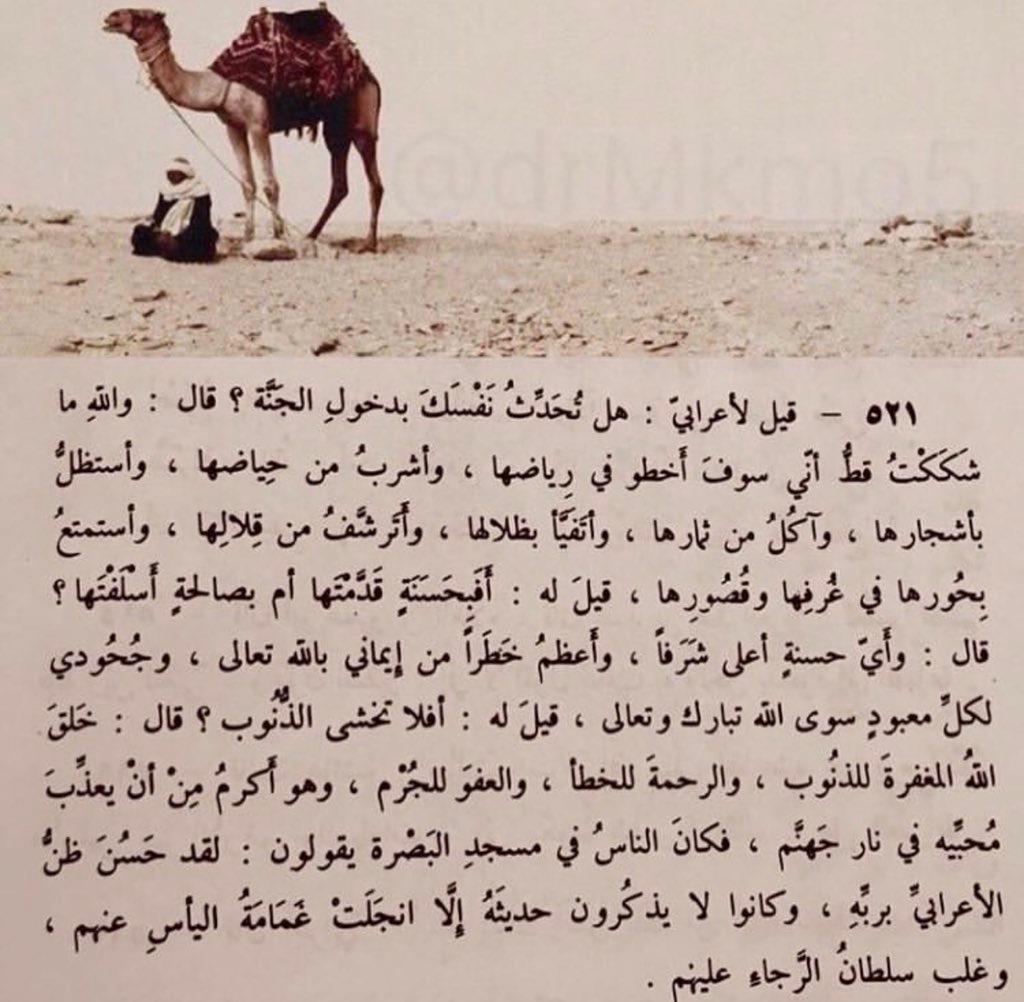 @drMkmo5
٥٢١ – قيل لأعرابيّ : هل تُحَدِّثُ نَفْسَكَ بدخولِ الجَنَّة ؟ قال : واللهِ ما
شكَكْتُ قطُّ أنّي سوفَ أَخطو في رِياضها ، وأشربُ من حِياضها ، وأستظلُّ
بأشجارها ، وآكُلُ من ثمارها ، وأتَفيَّأ بظلالها ، وأَتَرشَّفُ من قِلالِها ، وأستمتعُ
بِحُورها في غُرفِها وقُصُورِها ، قيلَ له : أَفَبِحَسَنَةٍ قَدَّمْتَها أم بصالحةٍ أَسْلَفْتَها ؟
قال : وأَيّ حسنةٍ أعلى شَرَفاً ، وأَعظمُ خَطَراً من إِيماني بالله تعالى ، وجُحُودي
لكلِّ معبودٍ سوى الله تبارك وتعالى ، قيلَ له : أفلا تخشى الذُّنُوب ؟ قال : خَلقَ
اللهُ المغفرةَ للذنُوب ، والرحمةَ للخطأ ، والعفوَ للجُرْم ، وهو أَكرمُ مِنْ أنْ يعذِّبَ
مُحبِّيه في نار جَهنَّم ، فكانَ الناسُ في مسجدِ البَصْرة يقولون : لقد حَسُنَ ظنُّ
الأعرابيِّ بربِّهِ ، وكانوا لا يذكُرون حديثَهُ إِلَّا انجَلَتْ غَمَامَةُ اليأسِ عنهم ،
وغلب سلطانُ الرَّجاءِ عليهم .